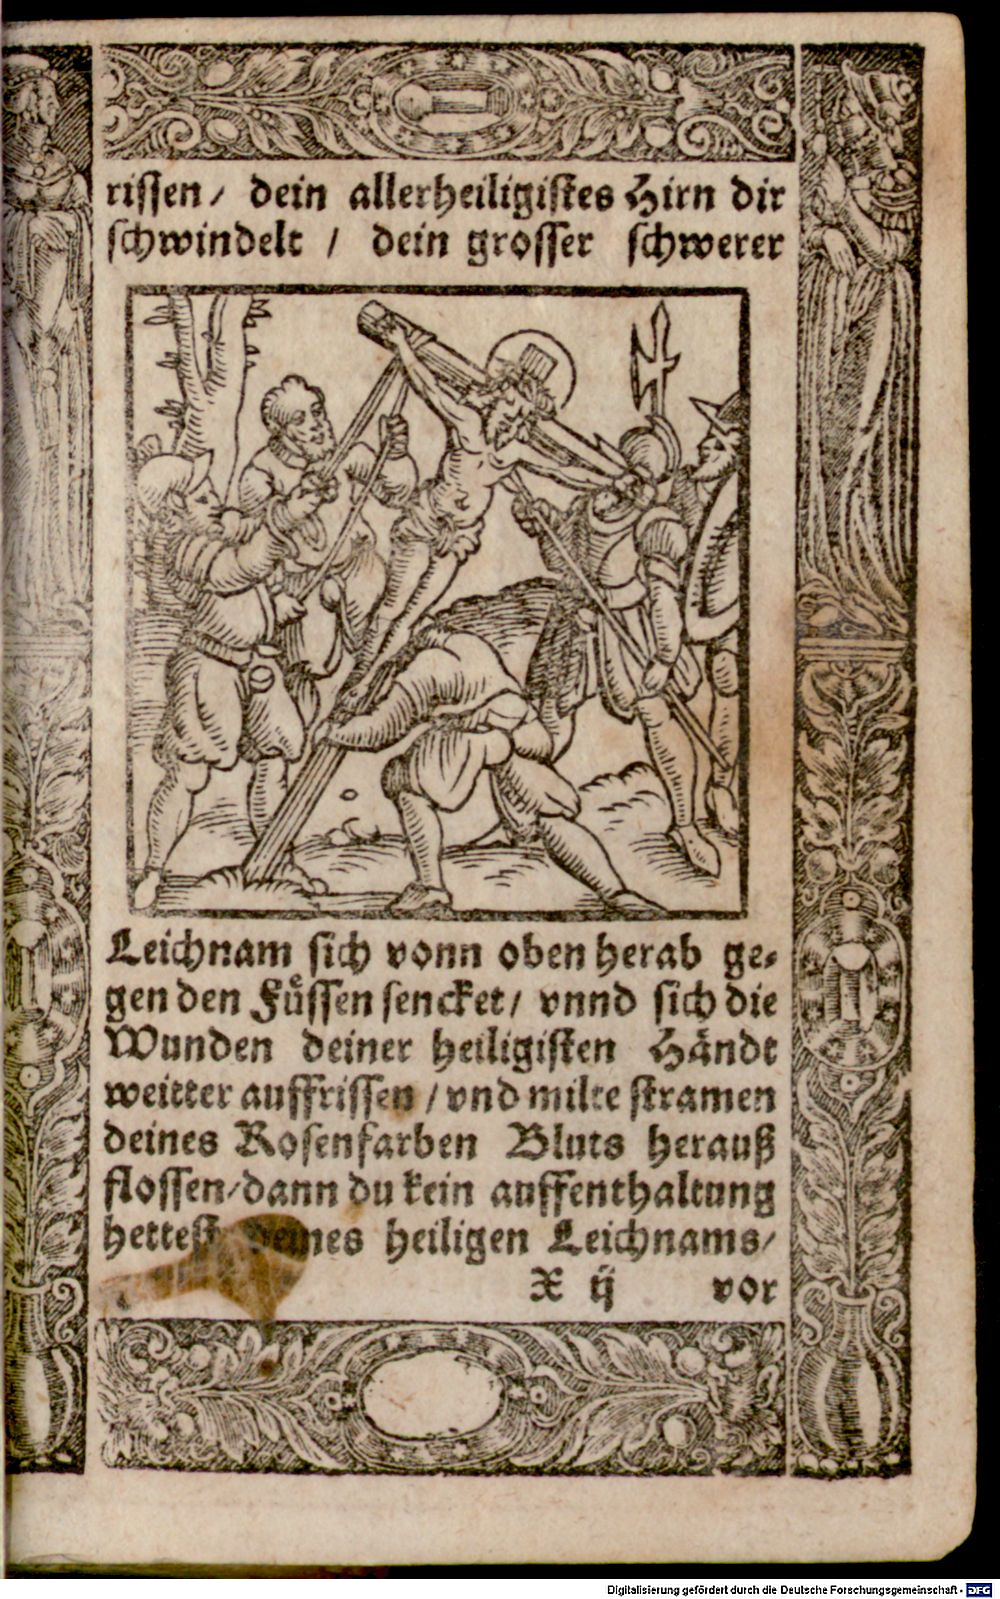 rissen/ dein allerheiligistes Hirn dir
schwindelt / dein grosser schwerer
Leichnam sich vonn oben herab ge-
gen den Fuͤssen sencket/ vnnd sich die
Wunden deiner heiligisten Haͤndt
weitter auffrissen / vnd milte stramen
deines Rosenfarben Bluts herauß
flossen/ dann du kein auffenthaltung
hettest deines heiligen Leichnams/
X ij vor
Digitalisierung gefördert durch die Deutsche Forschungsgemeinschaft - DFG